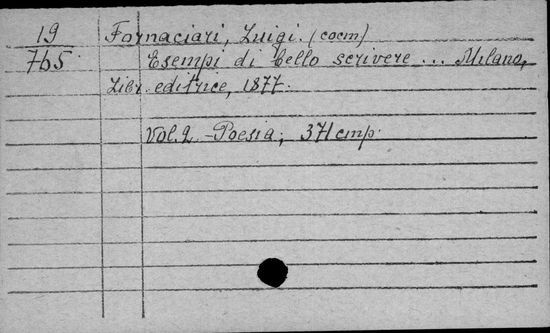 19
765
Fornaciari, Luigi. (сост)
Esempi di bello scrivere ... Milano,
Libr. editrice, 1877.
Vol. 2 - Poesia; 371 стр.